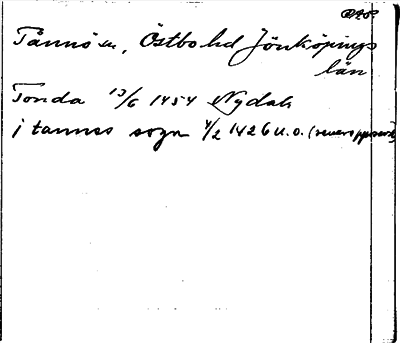 Tånnö sn, Östbo hd Jönköpings
län
Tonda 13/6 1454 Nydala
i tannes sogn 4/2 1426 u.o. (revers